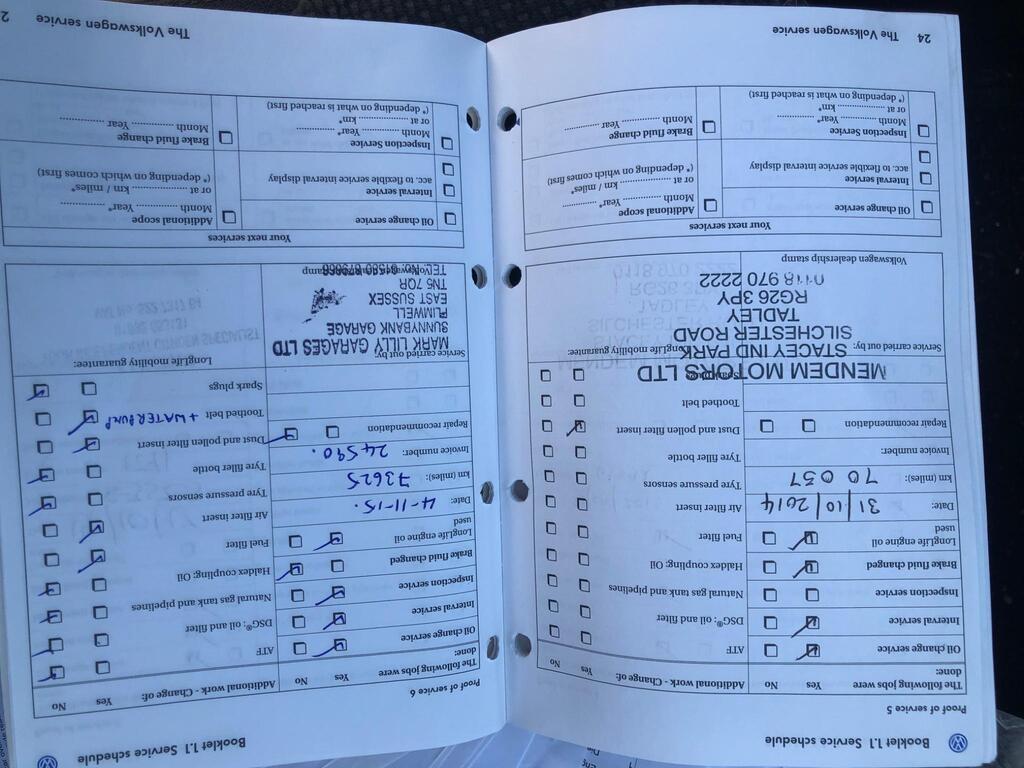 Booklet 1.1 Service schedule
Proof of service 5
The following jobs were done: Yes No
Additional work - Change of: Yes No
Oil change service
Interval service
Inspection service
Brake fluid changed
LongLife engine oil used
Date: 31/10/2014
km (miles): 70 057
Invoice number:
Repair recommendation
ATF
DSG®: oil and filter
Natural gas tank and pipelines
Haldex coupling: Oil
Fuel filter
Air filter insert
Tyre pressure sensors
Tyre filler bottle
Dust and pollen filter insert
Toothed belt
Service carried out by:
LongLife mobility guarantee:
MENDEM MOTORS LTD
STACEY IND PARK
SILCHESTER ROAD
TADLEY
RG26 3PY
0118 970 2222
Volkswagen dealership stamp
Your next services
Oil change service
Interval service
acc. to flexible service interval display
Inspection Service
Month .............. Year* ..............
or at .............. km*
(* depending on what is reached first)
Additional scope
Month .............. Year* ..............
or at .............. km / miles*
(* depending on which comes first)
Brake fluid change
Month .............. Year ..............
24 The Volkswagen service
Booklet 1.1 Service schedule
Proof of service 6
The following jobs were done: Yes No
Additional work - Change of: Yes No
Oil change service
Interval service
Inspection service
Brake fluid changed
LongLife engine oil used
Date: 4-11-15.
km (miles): 73625
Invoice number: 24590.
Repair recommendation
ATF
DSG®: oil and filter
Natural gas tank and pipelines
Haldex coupling: Oil
Fuel filter
Air filter insert
Tyre pressure sensors
Tyre filler bottle
Dust and pollen filter insert
Toothed belt + WATER PUMP
Spark plugs
Service carried out by:
LongLife mobility guarantee:
MARK LILLY GARAGES LTD
SUNNYBANK GARAGE
FLIMWELL
EAST SUSSEX
TN5 7QR
Your next services
Oil change service
Interval service
acc. to flexible service interval display
Inspection Service
Month .............. Year* ..............
or at .............. km*
(* depending on what is reached first)
Additional scope
Month .............. Year* ..............
or at .............. km / miles*
(* depending on which comes first)
Brake fluid change
Month .............. Year ..............
The Volkswagen service